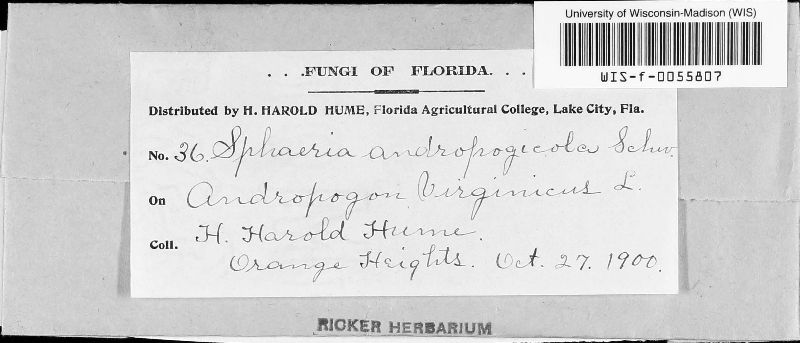 University of Wisconsin-Madison (WIS)
WIS-f-0055807
. . .FUNGI OF FLORIDA. . . .
Distributed by H. HAROLD HUME, Florida Agricultural College, Lake City, Fla.
No. 36. Sphaeria andropogicola Schw.
On Andropogon Virginicus L.
Coll. H. Harold Hume.
Orange Heights. Oct. 27. 1900.
RICKER HERBARIUM